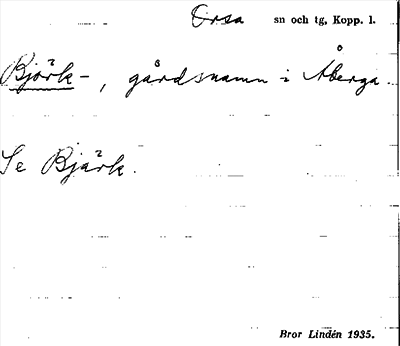 Orsa sn och tg, Kopp. l.
Björk-, gårdsnamn i Åberga.
Se Bjärk.
Bror Lindén 1935.